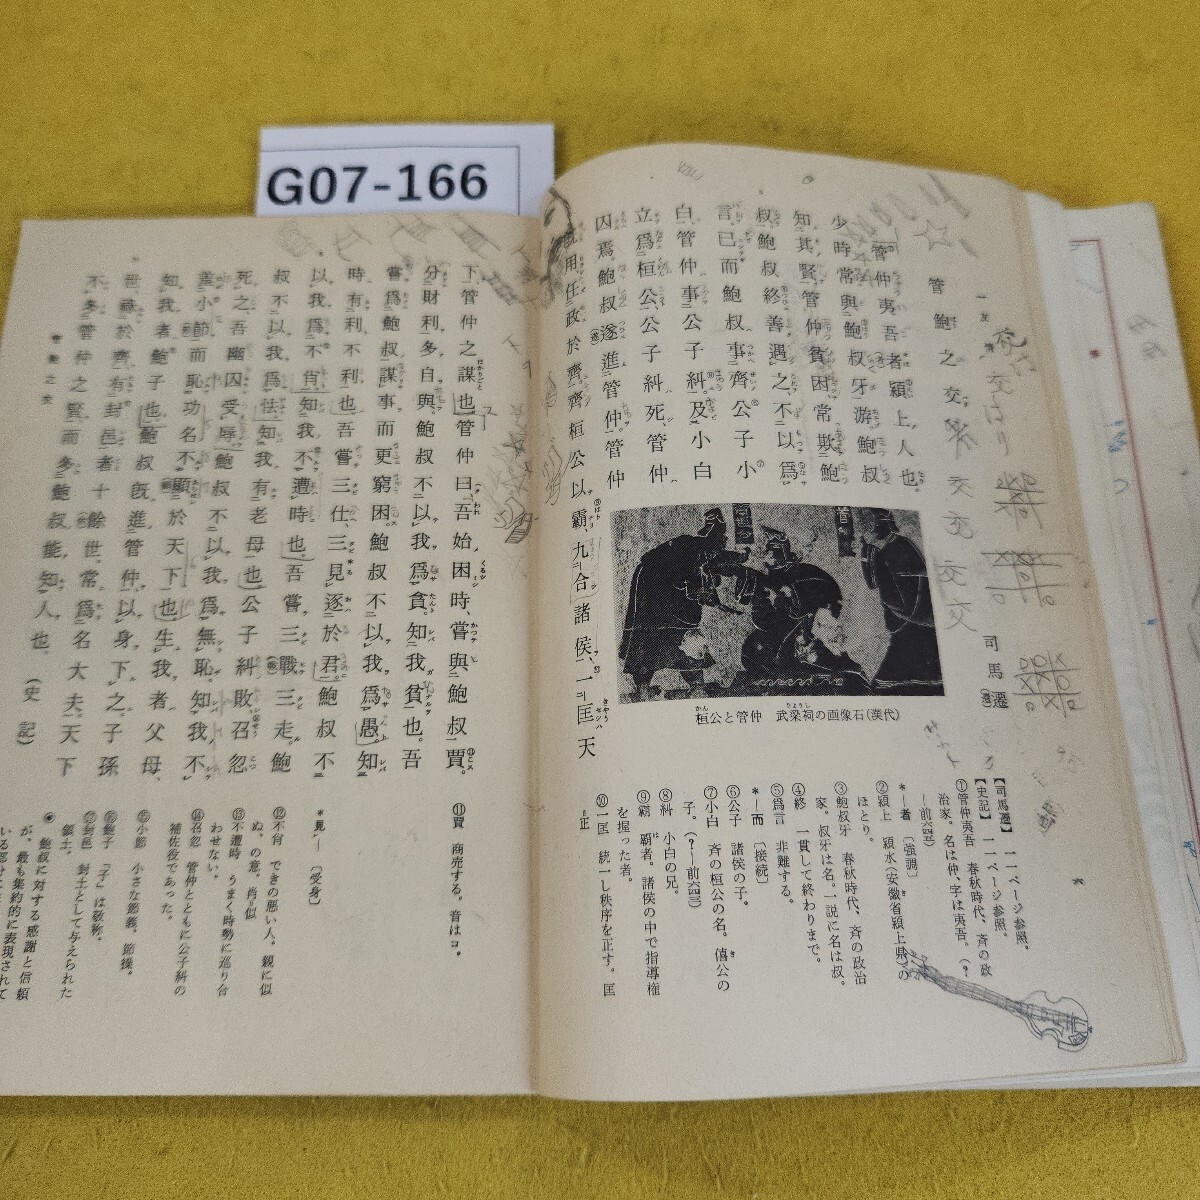 G07-166
一 友情
管鮑之交
司馬遷
管仲夷吾者、潁上人也。
少時常與鮑叔牙游、鮑叔
知其賢。管仲貧困、常欺鮑
叔、鮑叔終善遇之、不以爲
言。已而鮑叔事齊公子小
白、管仲事公子糾。及小白
立爲桓公、公子糾死、管仲
囚焉。鮑叔遂進管仲。管仲
既用、任政於齊、齊桓公以霸、九合諸侯、一匡天
桓公と管仲 武梁祠の画像石(漢代)
【司馬遷】 一一ページ参照。
【史記】 一一ページ参照。
①管仲夷吾 春秋時代、斉の政
治家。名は仲、字は夷吾。(?
—前六四五)
*—者 〔強調〕
②潁上 潁水(安徽省潁上県)の
ほとり。
③鮑叔牙 春秋時代、斉の政治
家。叔牙は名。一説に名は叔。
④終 一貫して終わりまで。
⑤爲言 非難する。
*—而 〔接続〕
⑥公子 諸侯の子。
⑦小白 斉の桓公の名。僖公の
子。(?—前六四三)
⑧糾 小白の兄。
⑨覇 覇者。諸侯の中で指導権
を握った者。
⑩一匡 統一し秩序を正す。匡
=正
六
下、管仲之謀也。管仲曰、吾始困時、嘗與鮑叔賈。
分財利多自與、鮑叔不以我爲貪、知我貧也。吾
嘗爲鮑叔謀事而更窮困。鮑叔不以我爲愚。知
時有利不利也。吾嘗三仕三見逐於君。鮑叔不
以我爲不肖。知我不遭時也。吾嘗三戰三走。鮑
叔不以我爲怯。知我有老母也。公子糾敗、召忽
死之、吾幽囚受辱。鮑叔不以我爲無恥。知我不
羞小節、而恥功名不顯於天下也。生我者父母、
知我者鮑子也。鮑叔既進管仲、以身下之。子孫
世祿於齊、有封邑者十餘世、常爲名大夫。天下
不多管仲之賢、而多鮑叔能知人也。(史記)
管鮑之交
⑪賈 商売する。音はコ。
*見— 〔受身〕
⑫不肖 できの悪い人。親に似
ぬ、の意。肖=似
⑬不遭時 うまく時勢に巡り合
わせない。
⑭召忽 管仲とともに公子糾の
補佐役であった。
⑮小節 小さな節義。節操。
⑯鮑子 「子」は敬称。
⑰封邑 封土として与えられた
領土。
◉ 鮑叔に対する感謝と信頼
が、最も集約的に表現されて